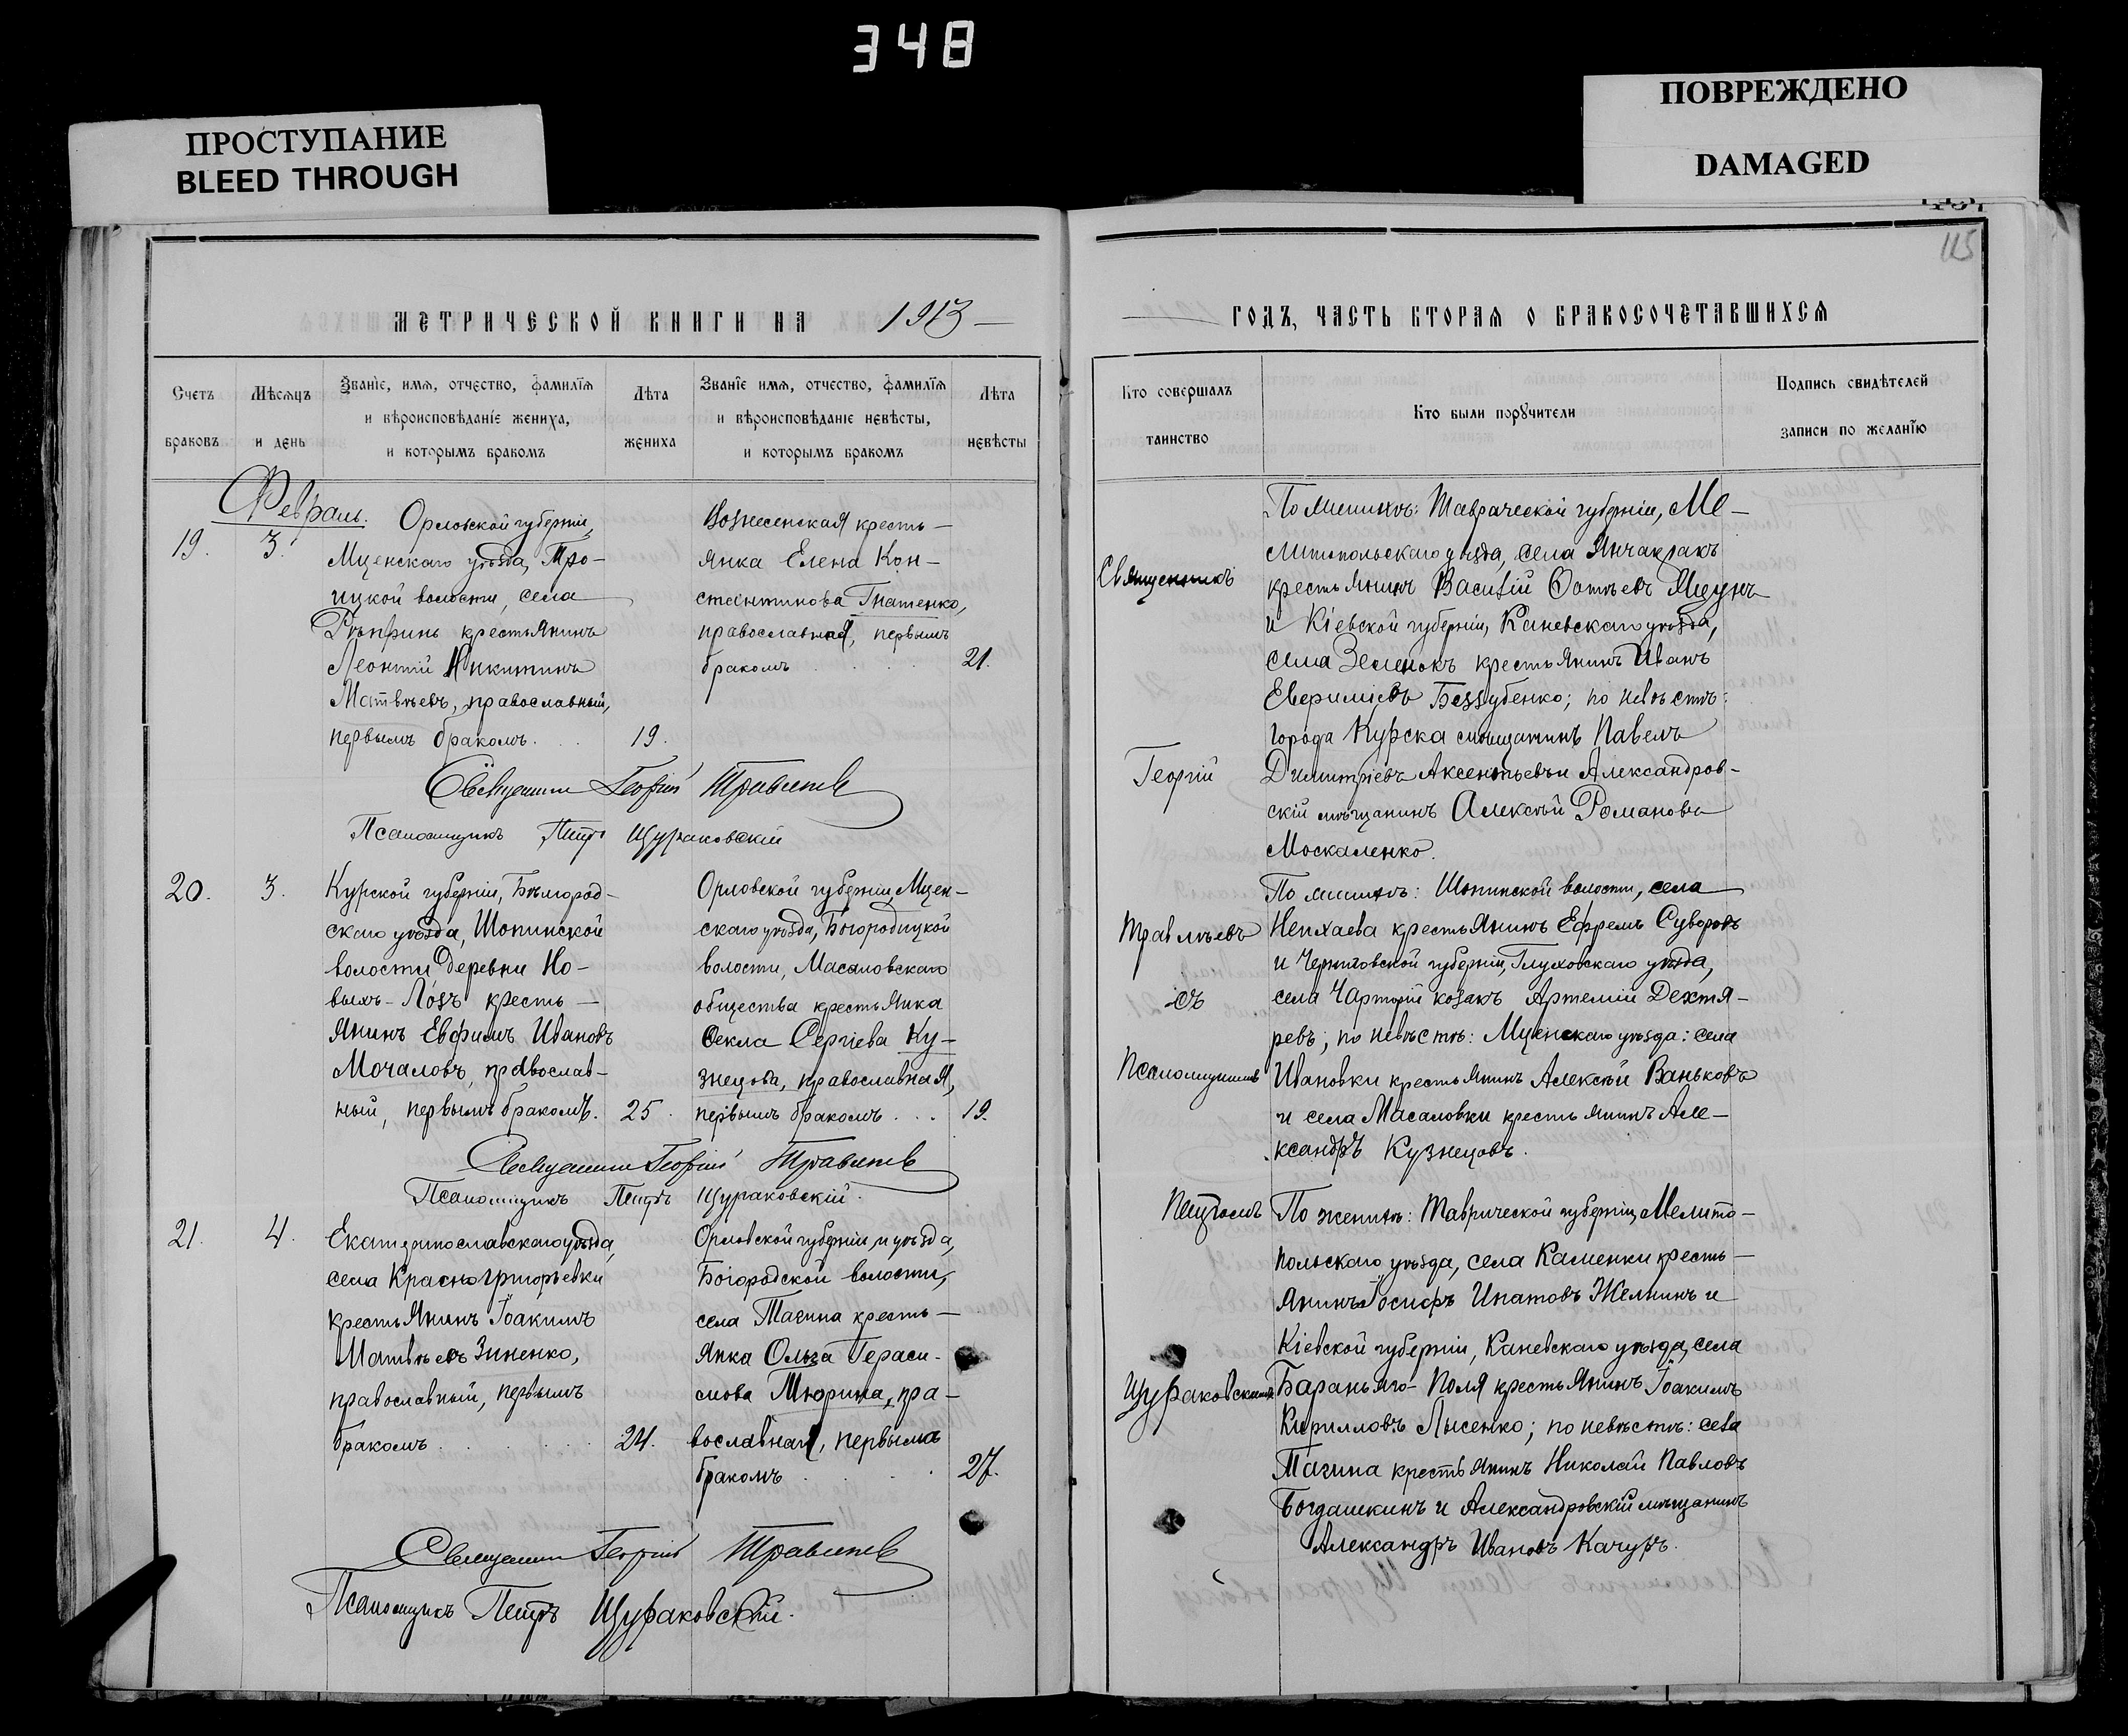 348
ПРОСТУПАНИЕ
BLEED THROUGH
ПОВРЕЖДЕНО
DAMAGED
115
МЕТРИЧЕСКОЙ КНИГИ НА 1913
Счетъ браковъ
Мѣсяцъ и день
Званіе, имя, отчество, фамилія
и вѣроисповѣданіе жениха,
и которымъ бракомъ
Лѣта жениха
Званіе имя, отчество, фамилія
и вѣроисповѣданіе невѣсты,
и которымъ бракомъ
Лѣта невѣсты
Февраль.
19.
3.
Орловской губерніи,
Мценскаго уѣзда, Тро-
ицкой волости, села
крестьянинъ
Леонтій Никитинъ
Матвѣевъ, православный,
первымъ бракомъ.
19.
Вознесенская кресть-
янка Елена Кон-
стантинова Гнатенко,
православная, первымъ
бракомъ
21.
Священникъ Георгій
Псаломщикъ Петръ Щураковскій
20.
3.
Курской губерніи, Бѣлгород-
скаго уѣзда, Шопинской
волости деревни Но-
выхъ-Лозъ кресть-
янинъ Евфимъ Ивановъ
Мочаловъ, православ-
ный, первымъ бракомъ.
25.
Орловской губерніи, Мцен-
скаго уѣзда, Богородицкой
волости, Масаловскаго
общества крестьянка
Ѳекла Сергіева Ку-
знецова, православная,
первымъ бракомъ
19.
Священникъ Георгій
Псаломщикъ Петръ Щураковскій.
21.
4.
Екатеринославскаго уѣзда,
села Красногригорьевки
крестьянинъ Іоакимъ
Матвѣевъ Зиненко,
православный, первымъ
бракомъ
24.
Орловской губерніи и уѣзда,
Богородской волости,
села Тагина кресть-
янка Ольга Гераси-
мова Тюрина, пра-
вославная, первымъ
бракомъ
27.
Священникъ Георгій
Псаломщикъ Петръ Щураковскій.
ГОДЪ, ЧАСТЬ ВТОРАЯ О БРАКОСОЧЕТАВШИХСЯ
Кто совершалъ
таинство
Кто были поручители
Подпись свидѣтелей
записи по желанію
Священникъ
Георгій
съ
Псаломщикомъ
Петромъ
Щураковскимъ
По женихѣ: Таврической губерніи, Ме-
литопольскаго уѣзда, села Янчакракъ
крестьянинъ Василій
и Кіевской губерніи, Каневскаго уѣзда,
села Зеленокъ крестьянинъ Иванъ
Беззубенко; по невѣстѣ:
города Курска мѣщанинъ Павелъ
Димитріевъ Аксентьевъ и Александров-
скій мѣщанинъ Алексѣй Романовъ
Москаленко.
По женихѣ: Шопинской волости, села
Непхаева крестьянинъ Ефремъ Суворовъ
и Черниговской губерніи, Глуховскаго уѣзда,
села Чарторій козакъ Артемій Дехтя-
ревъ; по невѣстѣ: Мценскаго уѣзда: села
Ивановки крестьянинъ Алексѣй Ваньковъ
и села Масаловки крестьянинъ Але-
ксандръ Кузнецовъ.
По женихѣ: Таврической губерніи, Мелито-
польскаго уѣзда, села Каменки кресть-
янинъ Іосифъ Ипатовъ и
Кіевской губерніи, Каневскаго уѣзда, села
Бараньяго-Поля крестьянинъ Іоакимъ
Кирилловъ Лысенко; по невѣстѣ: села
Тагина крестьянинъ Николай Павловъ
Богдашкинъ и Александровскій мѣщанинъ
Александръ Ивановъ Качуръ.